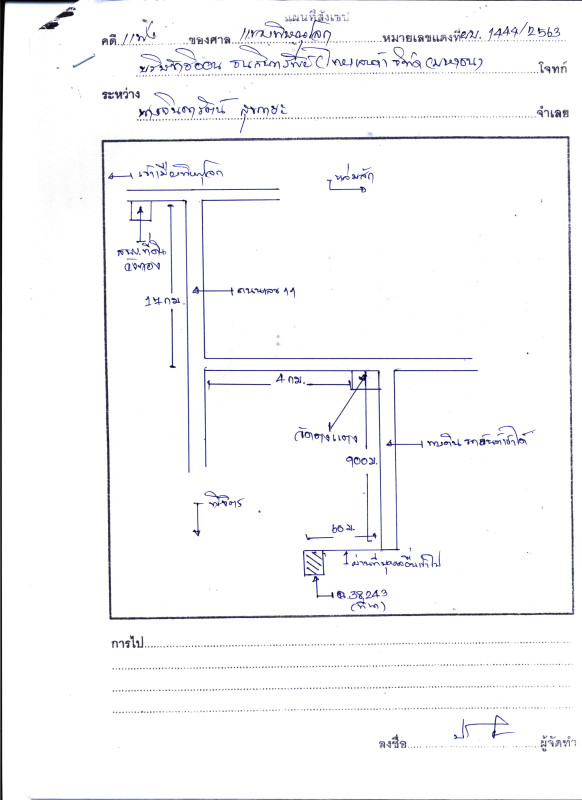 แผนที่สังเขป
คดี แพ่ง ของศาล แขวงพิษณุโลก หมายเลขแดงที่ ผบ. 1444/2563
บริษัทอิออน ธนสินทรัพย์ (ไทยแลนด์) จำกัด (มหาชน) โจทก์
ระหว่าง
จำเลย
เข้าเมืองพิษณุโลก
หล่มสัก
สนง.ที่ดิน
วังทอง
17 กม.
ถนนเลข 11
4 กม.
วัดตาลแดง
900 ม.
ทางดิน รถยนต์เข้าได้
พิจิตร
60 ม.
ผ่านที่บุคคลอื่นเข้าไป
ฉ.38243
(ที่นา)
การไป
ลงชื่อ ผู้จัดทำ